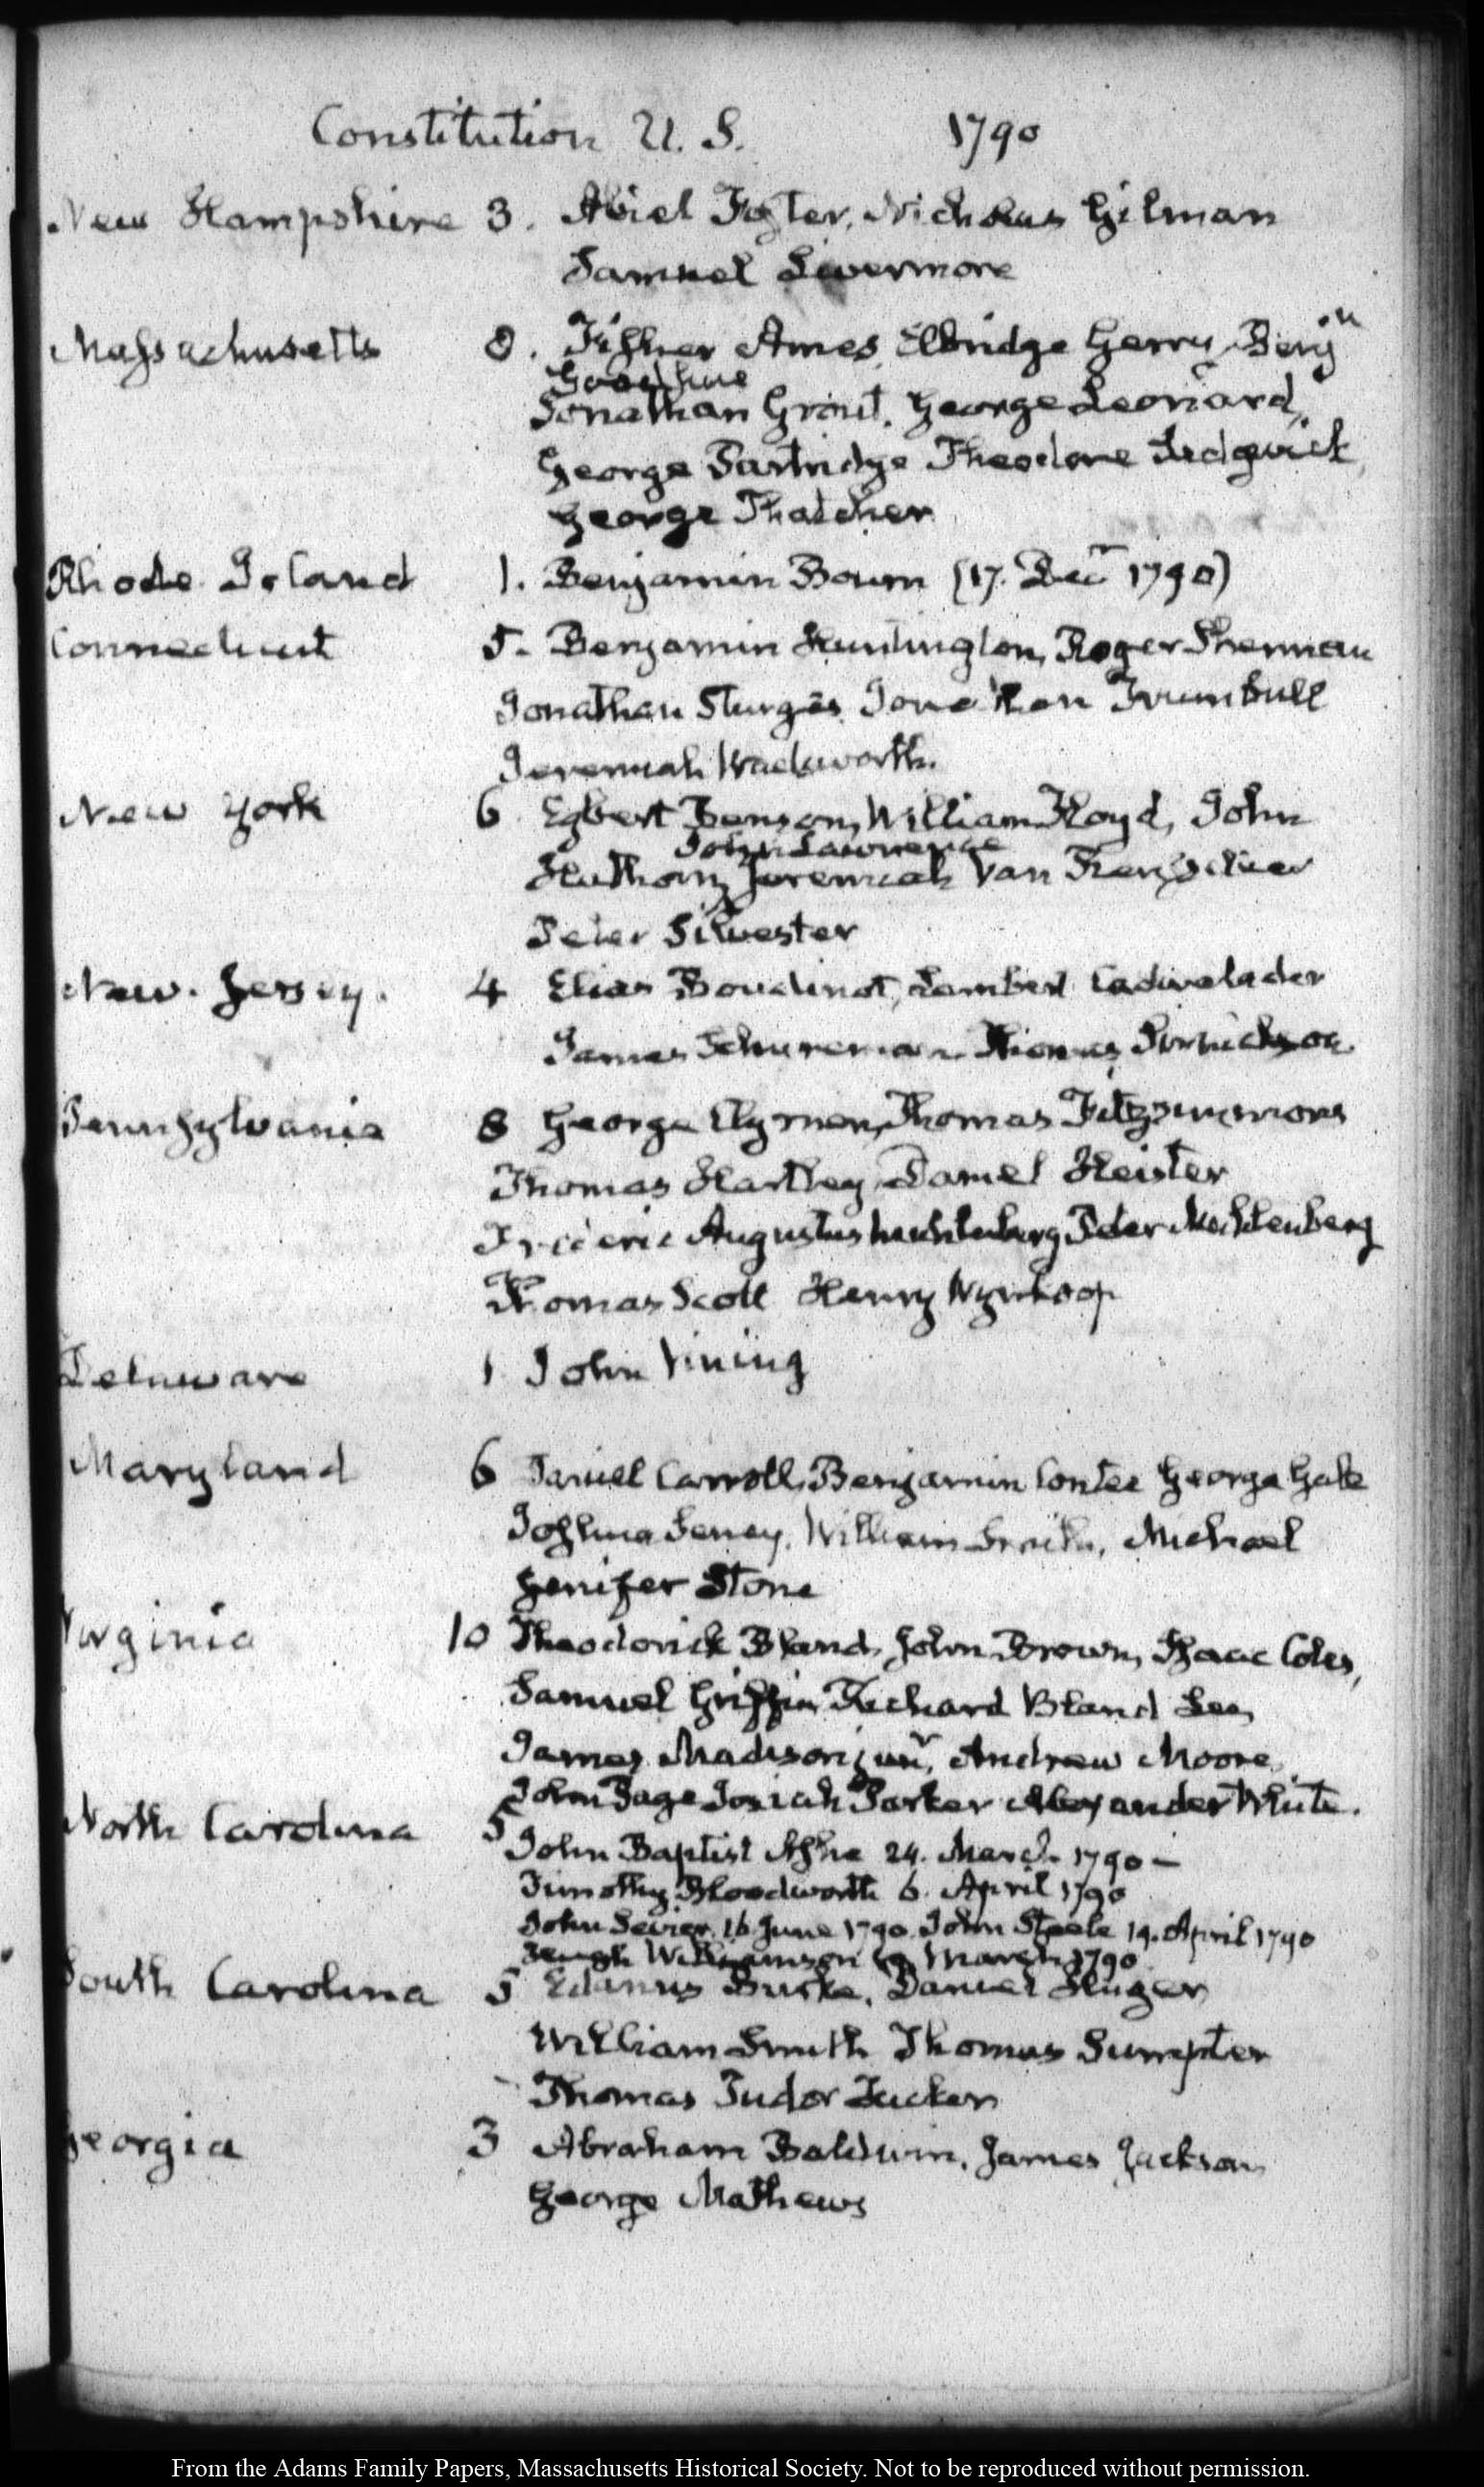 Constitution U. S. 1790
New Hampshire 3. Abiel Foster, Nicholas Gilman
Samuel Livermore
Massachusetts 8. Fisher Ames, Elbridge Gerry, Benjn
Goodhue
Jonathan Grout, George Leonard,
George Partridge Theodore Sedgwick
George Thatcher
Rhode Island 1. Benjamin Bourn (17. Decr 1790)
Connecticut 5. Benjamin Huntington, Roger Sherman
Jonathan Sturges Jonathan Trumbull
Jeremiah Wadsworth.
New York 6 Egbert Benson, William Floyd, John
John Lawrence
Hathorn, Jeremiah Van Rensselaer
Peter Silvester
New. Jersey. 4 Elias Boudinot, Lambert Cadwalader
James Schureman Thomas Sinnickson
Pennsylvania 8 George Clymer, Thomas Fitzsimmons
Thomas Hartley, Daniel Heister
Frederic Augustus Muhlenberg Peter Muhlenberg
Thomas Scott Henry Wynkoop
Delaware 1 John Vining
Maryland 6 Daniel Carroll, Benjamin Contee George Gale
Joshua Seney, William Smith, Michael
Jenifer Stone
Virginia 10 Theodorick Bland, John Brown, Isaac Coles,
Samuel Griffin Richard Bland Lee,
James Madison junr, Andrew Moore,
John Page Josiah Parker Alexander White.
North Carolina 5
John Baptist Ashe 24. March 1790 —
Timothy Bloodworth 6. April 1790
John Sevier 16 June 1790. John Steele 19. April 1790
Hugh Williamson 19 March 1790
South Carolina 5 Edanus Burke, Daniel Huger
William Smith Thomas Sumpter
Thomas Tudor Tucker
Georgia 3 Abraham Baldwin, James Jackson
George Mathews
From the Adams Family Papers, Massachusetts Historical Society. Not to be reproduced without permission.